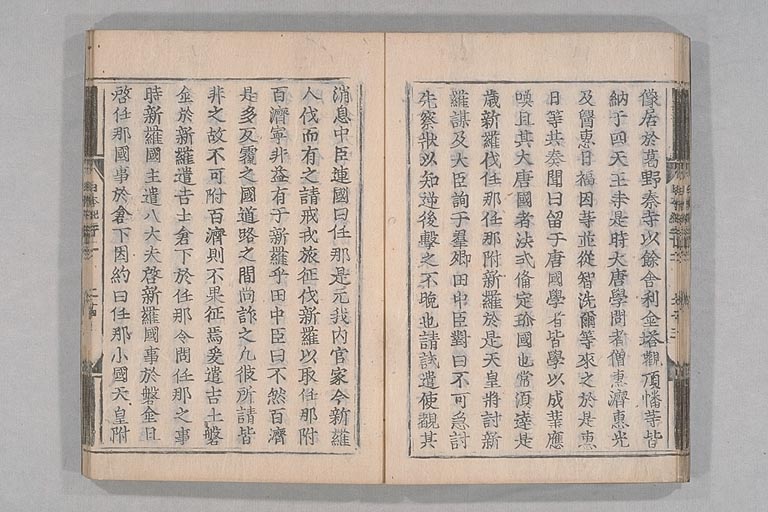 像居於葛野秦寺以餘舍利金塔觀頂幡等皆
納于四天王寺是時大唐學問者僧惠濟惠光
及醫惠日福因等並從智洗爾等來之於是惠
日等共奏聞曰留于唐國學者皆學以成業應
喚且其大唐國者法式備定珍國也常須達是
歲新羅伐任那任那附新羅於是天皇將討新
羅謀及大臣詢于羣卿田中臣對曰不可急討
先察狀以知逆後擊之不晚也請試遣使觀其
消息中臣連國曰任那是元我內官家今新羅
人伐而有之請戒戎旅征伐新羅以取任那附
百濟寧非益有于新羅乎田中臣曰不然百濟
是多反覆之國道路之間尚詐之凡彼所請皆
非之故不可附百濟則不果征焉爰遣吉士磐
金於新羅遣吉士倉下於任那令問任那之事
時新羅國主遣八大夫啓新羅國事於磐金且
啓任那國事於倉下因約曰任那小國天皇附